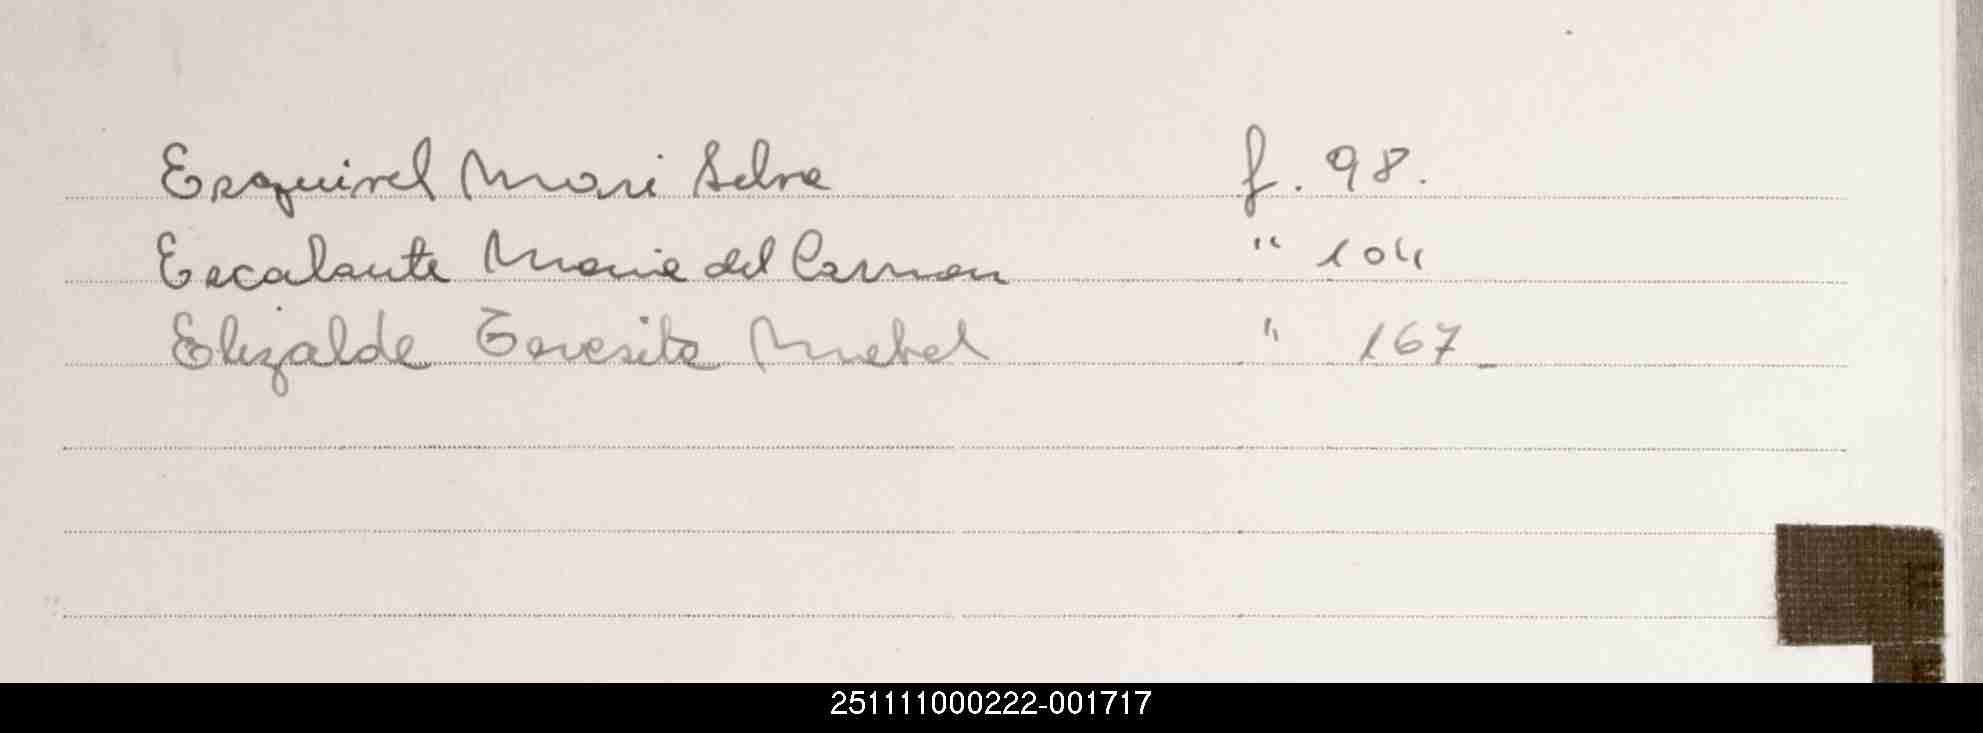 Esquivel Mari Selva f. 98.
Escalante Maria del Carmen " 104
Elizalde Teresita Mabel " 167
251111000222-001717